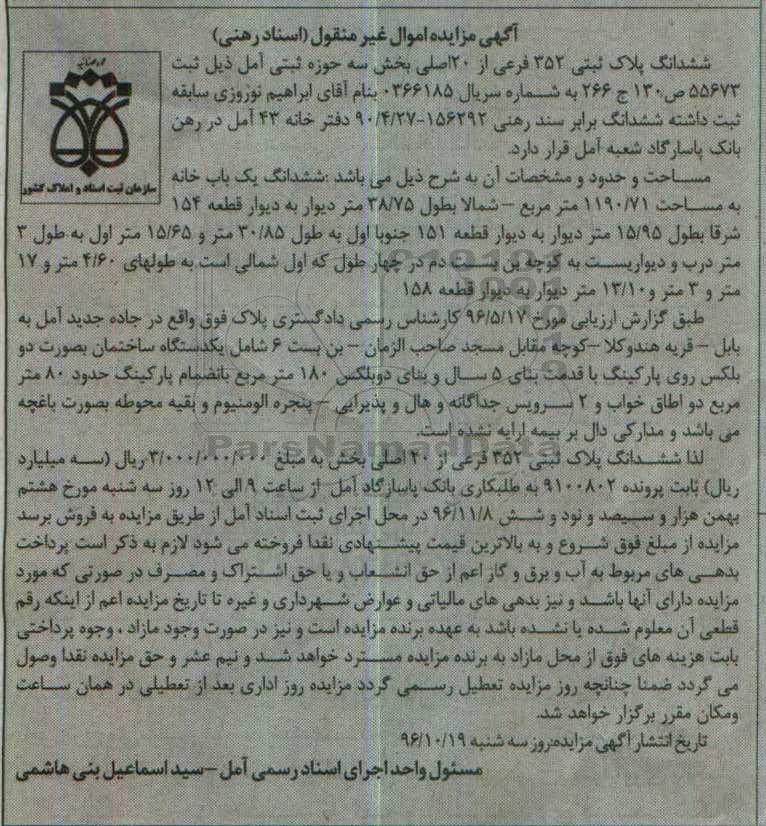 آگهی مزایده اموال غیر منقول (اسناد رهنی)
ششدانگ پلاک ثبتی ۳۵۲ فرعی از ۲۰اصلی بخش سه حوزه ثبتی آمل ذیل ثبت
۵۵۶۷۳ ص۱۳۰ ج ۲۶۶ به شماره سریال ۰۳۶۶۱۸۵ بنام آقای ابراهیم نوروزی سابقه
ثبت داشته ششدانگ برابر سند رهنی ۱۵۶۲۹۲-۹۰/۴/۲۷ دفتر خانه ۴۳ آمل در رهن
بانک پاسارگاد شعبه آمل قرار دارد.
سازمان ثبت اسناد و املاک کشور
مساحت و حدود و مشخصات آن به شرح ذیل می باشد :ششدانگ یک باب خانه
به مساحت ۱۱۹۰/۷۱ متر مربع – شمالا بطول ۳۸/۷۵ متر دیوار به دیوار قطعه ۱۵۴
شرقا بطول ۱۵/۹۵ متر دیوار به دیوار قطعه ۱۵۱ جنوبا اول به طول ۳۰/۸۵ متر و ۱۵/۶۵ متر اول به طول ۳
متر درب و دیواریست به کوچه بن بست دم در چهار طول که اول شمالی است به طولهای ۴/۶۰ متر و ۱۷
متر و ۳ متر و۱۳/۱۰ متر دیوار به دیوار قطعه ۱۵۸
طبق گزارش ارزیابی مورخ ۹۶/۵/۱۷ کارشناس رسمی دادگستری پلاک فوق واقع در جاده جدید آمل به
بابل – قریه هندوکلا –کوچه مقابل مسجد صاحب الزمان – بن بست ۶ شامل یکدستگاه ساختمان بصورت دو
بلکس روی پارکینگ با قدمت بنای ۵ سال و بنای دوبلکس ۱۸۰ متر مربع بانضمام پارکینگ حدود ۸۰ متر
مربع دو اطاق خواب و ۲ سرویس جداگانه و هال و پذیرایی – پنجره الومنیوم و بقیه محوطه بصورت باغچه
می باشد و مدارکی دال بر بیمه ارایه نشده است.
ParsNamadData
لذا ششدانگ پلاک ثبتی ۳۵۲ فرعی از ۲۰ اصلی بخش به مبلغ ۳/۰۰۰/۰۰۰/۰۰۰ ریال (سه میلیارد
ریال) بابت پرونده ۹۱۰۰۸۰۲ به طلبکاری بانک پاسارگاد آمل از ساعت ۹ الی ۱۲ روز سه شنبه مورخ هشتم
بهمن هزار و سیصد و نود و شش ۹۶/۱۱/۸ در محل اجرای ثبت اسناد آمل از طریق مزایده به فروش برسد
مزایده از مبلغ فوق شروع و به بالاترین قیمت پیشنهادی نقدا فروخته می شود لازم به ذکر است پرداخت
بدهی های مربوط به آب و برق و گاز اعم از حق انشعاب و یا حق اشتراک و مصرف در صورتی که مورد
مزایده دارای آنها باشد و نیز بدهی های مالیاتی و عوارض شهرداری و غیره تا تاریخ مزایده اعم از اینکه رقم
قطعی آن معلوم شده یا نشده باشد به عهده برنده مزایده است و نیز در صورت وجود مازاد ، وجوه پرداختی
بابت هزینه های فوق از محل مازاد به برنده مزایده مسترد خواهد شد و نیم عشر و حق مزایده نقدا وصول
می گردد ضمنا چنانچه روز مزایده تعطیل رسمی گردد مزایده روز اداری بعد از تعطیلی در همان ساعت
ومکان مقرر برگزار خواهد شد.
تاریخ انتشار آگهی مزایده:روز سه شنبه ۹۶/۱۰/۱۹
مسئول واحد اجرای اسناد رسمی آمل –سید اسماعیل بنی هاشمی